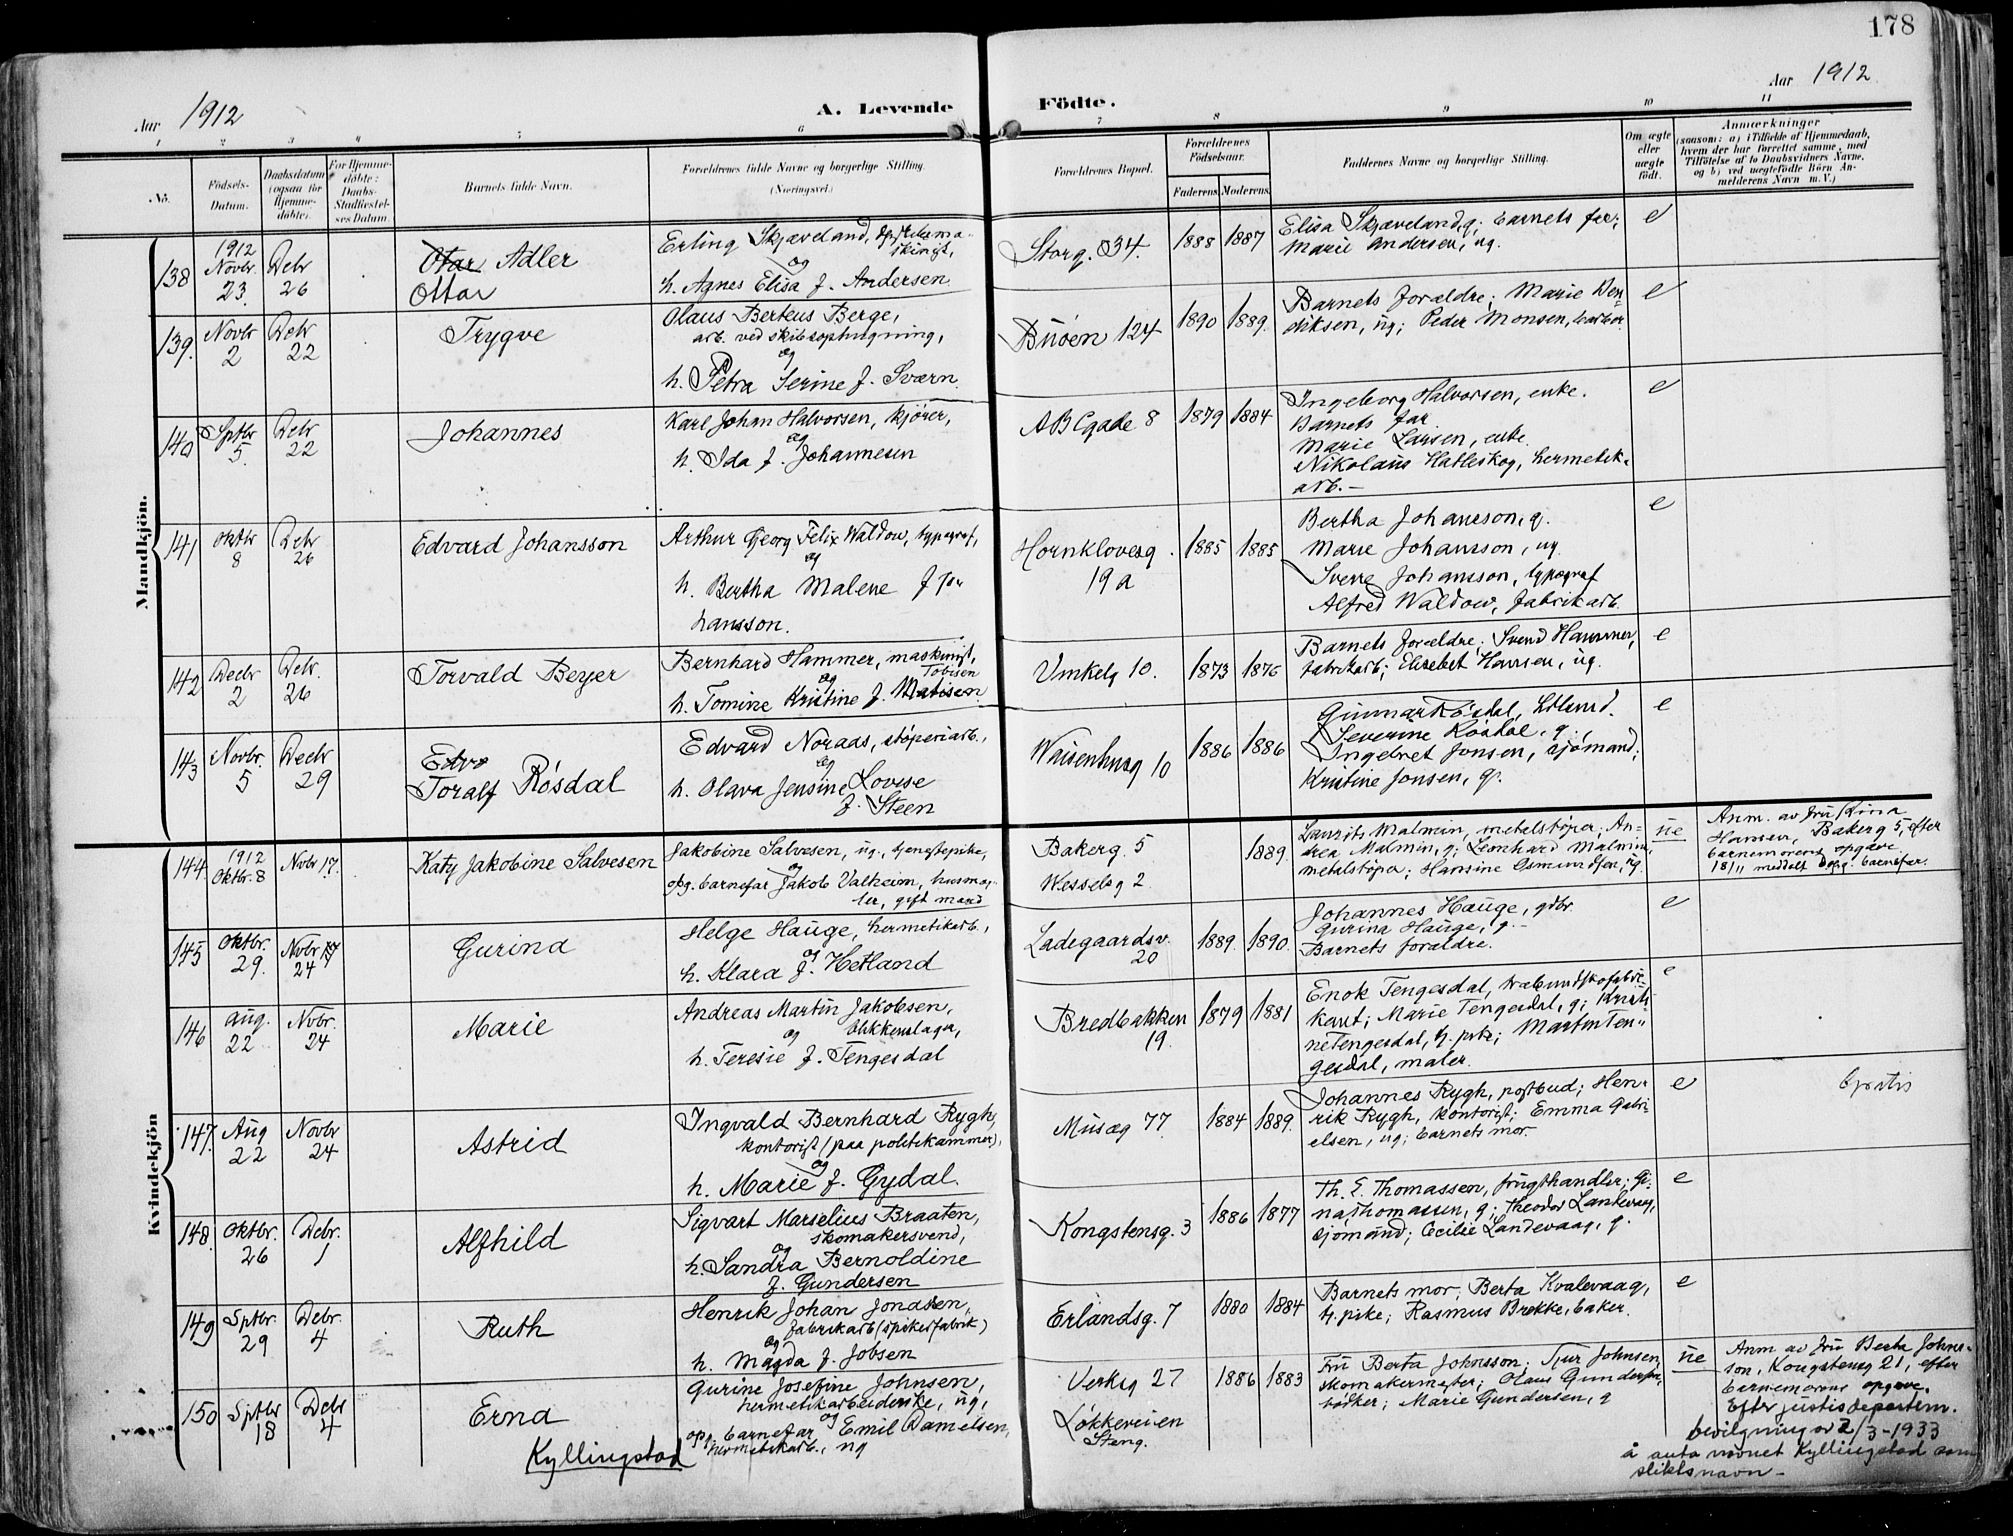 178
Aar 1912
A. Levende
Födte.
Aar 1912
1 2 3 4 5 6 7 8 9 10 11
No.
Födsels-
Datum.
Daabsdatum
(ogsaa for
Hjemme-
döbte).
For Hjemme-
döbte:
Daabs-
Stadfæstel-
ses Datum.
Barnets fulde Navn.
Forældrenes fulde Navne og borgerlige Stilling.
(Næringsvei.)
Forældrenes Bopæl.
Forældrenes
Födselsaar.
Faderens. Moderens.
Faddernes Navne og borgerlige Stilling.
Om ægte
eller
uægte
födt.
Anmærkninger
(saasom: a) i Tilfælde af Hjemmedaab,
hvem der har forrettet samme, med
Tilföielse af to Daabsvidners Navne,
og b) ved uægtefödte Börn An-
melderens Navn m. V.)
Mandkjön.
138
1912
Novbr.
23.
Debr
26
Otar Adler
Ottar
Erling Skjæveland,
og
h. Agnes Elisa f. Andersen.
Storg. 34.
1888 1887
Elisa Skjæveland, g; barnets far;
Marie Andersen, ug.
e
139.
Novbr
2
Debr
22
Trygve
Olaus Berteus Berge,
arb. ved skibsophugning,
og
h. Petra Serine f. Sværn.
Buøen 124
1890 1889.
Barnets forældre; Marie Ben-
diksen, ug; Peder Monsen, barber
e
140
Sptbr
5.
Debr
22
Johannes
Karl Johan Halvorsen, kjører,
og
h. Ida f. Johannesen
ABCgade 8
1879 1884
Ingeborg Halvorsen, enke.
Barnets far.
Marie Larsen, enke.
Nikolaus Hatleskog, hermetik-
arb. –
e
141
oktbr
8
Debr
26
Edvard Johansson
Arthur Georg Felix Waldow, typograf,
og
h. Bertha Malene f Jo-
hansson.
Hornklovesg.
19 a
1885 1885
Bertha Johansson, g.
Marie Johansson, ug.
Sverre Johansson, typograf
Alfred Waldow, fabrikarb.
e
142
Decbr
2
Debr.
26
Torvald Beyer
Bernhard Hammer, maskinist,
og Tobisen
h. Tomine Kristine f. Matisen
Vinkelg 10.
1873 1876
Barnets forældre; Svend Hammer,
fabrikarb; Elisebet Hansen, ug.
e
143
Novbr.
5
Decbr
29
Edv
Toralf Røsdal
Edvard Noraas, støperiarb.,
og
h. Olava Jensine Lovise
f. Steen
Waisenhusg 10
1886 1886
Gunnar Røsdal,
Severine Røsdal, g.
Ingebret Jonsen, sjømand;
Kristine Jonsen, g.
e
Kvindekjön
144
1912
Oktbr. 8
Novbr 17.
Katy Jakobine Salvesen
Jakobine Salvesen, ug., tjenestepike,
og
opg. barnefar Jakob Valheim, husma-
ler, gift mand
Bakerg. 5
Wesselsg 2.
1889.
Laurits Malmin, metalstøper; An-
drea Malmin, g; Leonhard Malmin,
metalstøper; Hansine Osmundsen, ug.
ue
Anm. av fru Lina
Hansen, Bakerg 5, efter
barnemorens opgave.
18/11 meddelt opg. barnefar.
145
Oktbr.
29.
Novbr 17
24
Gurina
Helge Hauge, hermetikarb.,
og
h. Klara f. Hetland
Ladegaardsv.
20
1889. 1890.
Johannes Hauge, gdbr
Gurina Hauge, g. –
Barnets forældre.
e
146
Aug.
22
Novbr.
24
Marie
Andreas Martin Jakobsen,
og blikkenslager,
h. Teresie f. Tengesdal
Bredbakken
19.
1879 1881
Enok Tengesdal, træbundskofabri-
kant; Marie Tengesdal, g; Kristi-
ne Tengesdal, tj. pike; Martin Ten-
gesdal, maler.
e
147.
Aug
22
Novbr
24
Astrid
Ingvald Bernhard Rygh,
kontorist (paa politikammer),
og
h. Marie f. Gydal.
Musæg 77.
1884 1889.
Johannes Rygh, postbud; Hen-
rik Rygh, kontorist; Emma Gabri-
elsen, ug; barnets mor.
e
Gratis
148.
Oktbr.
26
Debr.
1
Alfhild
Sigvart Marselius Braaten,
skomakersvend,
og
h. Sandra Bernoldine
f. Gundersen
Kongstensg. 3
1886 1877
Th. E. Thomassen, frugthandler; Gi-
na Thomassen, g; Theodor Landevaag,
sjømand; Cecilie Landevaag, g.
e
149
Sptbr.
29
Debr.
4
Ruth
Henrik Johan Jonassen,
fabrikarb (spikerfabrik)
og
h. Magda f. Jobsen
Erlandsg. 7
1880 1884
Barnets mor, Berta Kvalevaag,
tj. pike; Rasmus Brekke, baker.
e
150
Sptbr
18
Debr
4
Erna
Kyllingstad
Gurine Josefine Johnsen,
hermetikarbeiderske, ug,
og
opg. barnefar Emil Danielsen,
hermetikarb., ug
Verksg 27
Løkkeveien
Steng.
1886 1883
Fru Berta Johnsson; Sjur Johnsen,
skomakermester; Olaus Gundersen,
bødker; Marie Gundersen, g
ue
Anm av fru Berta Johns-
son, Kongstensg 21, efter
barnemorens opgave.
Efter justisdepartem.
bevilgning av 2/3-1933
å anta navnet Kyllingstad som
slektsnavn –